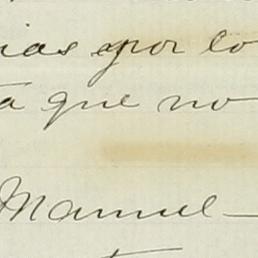 ias por lo
a que no
Manuel